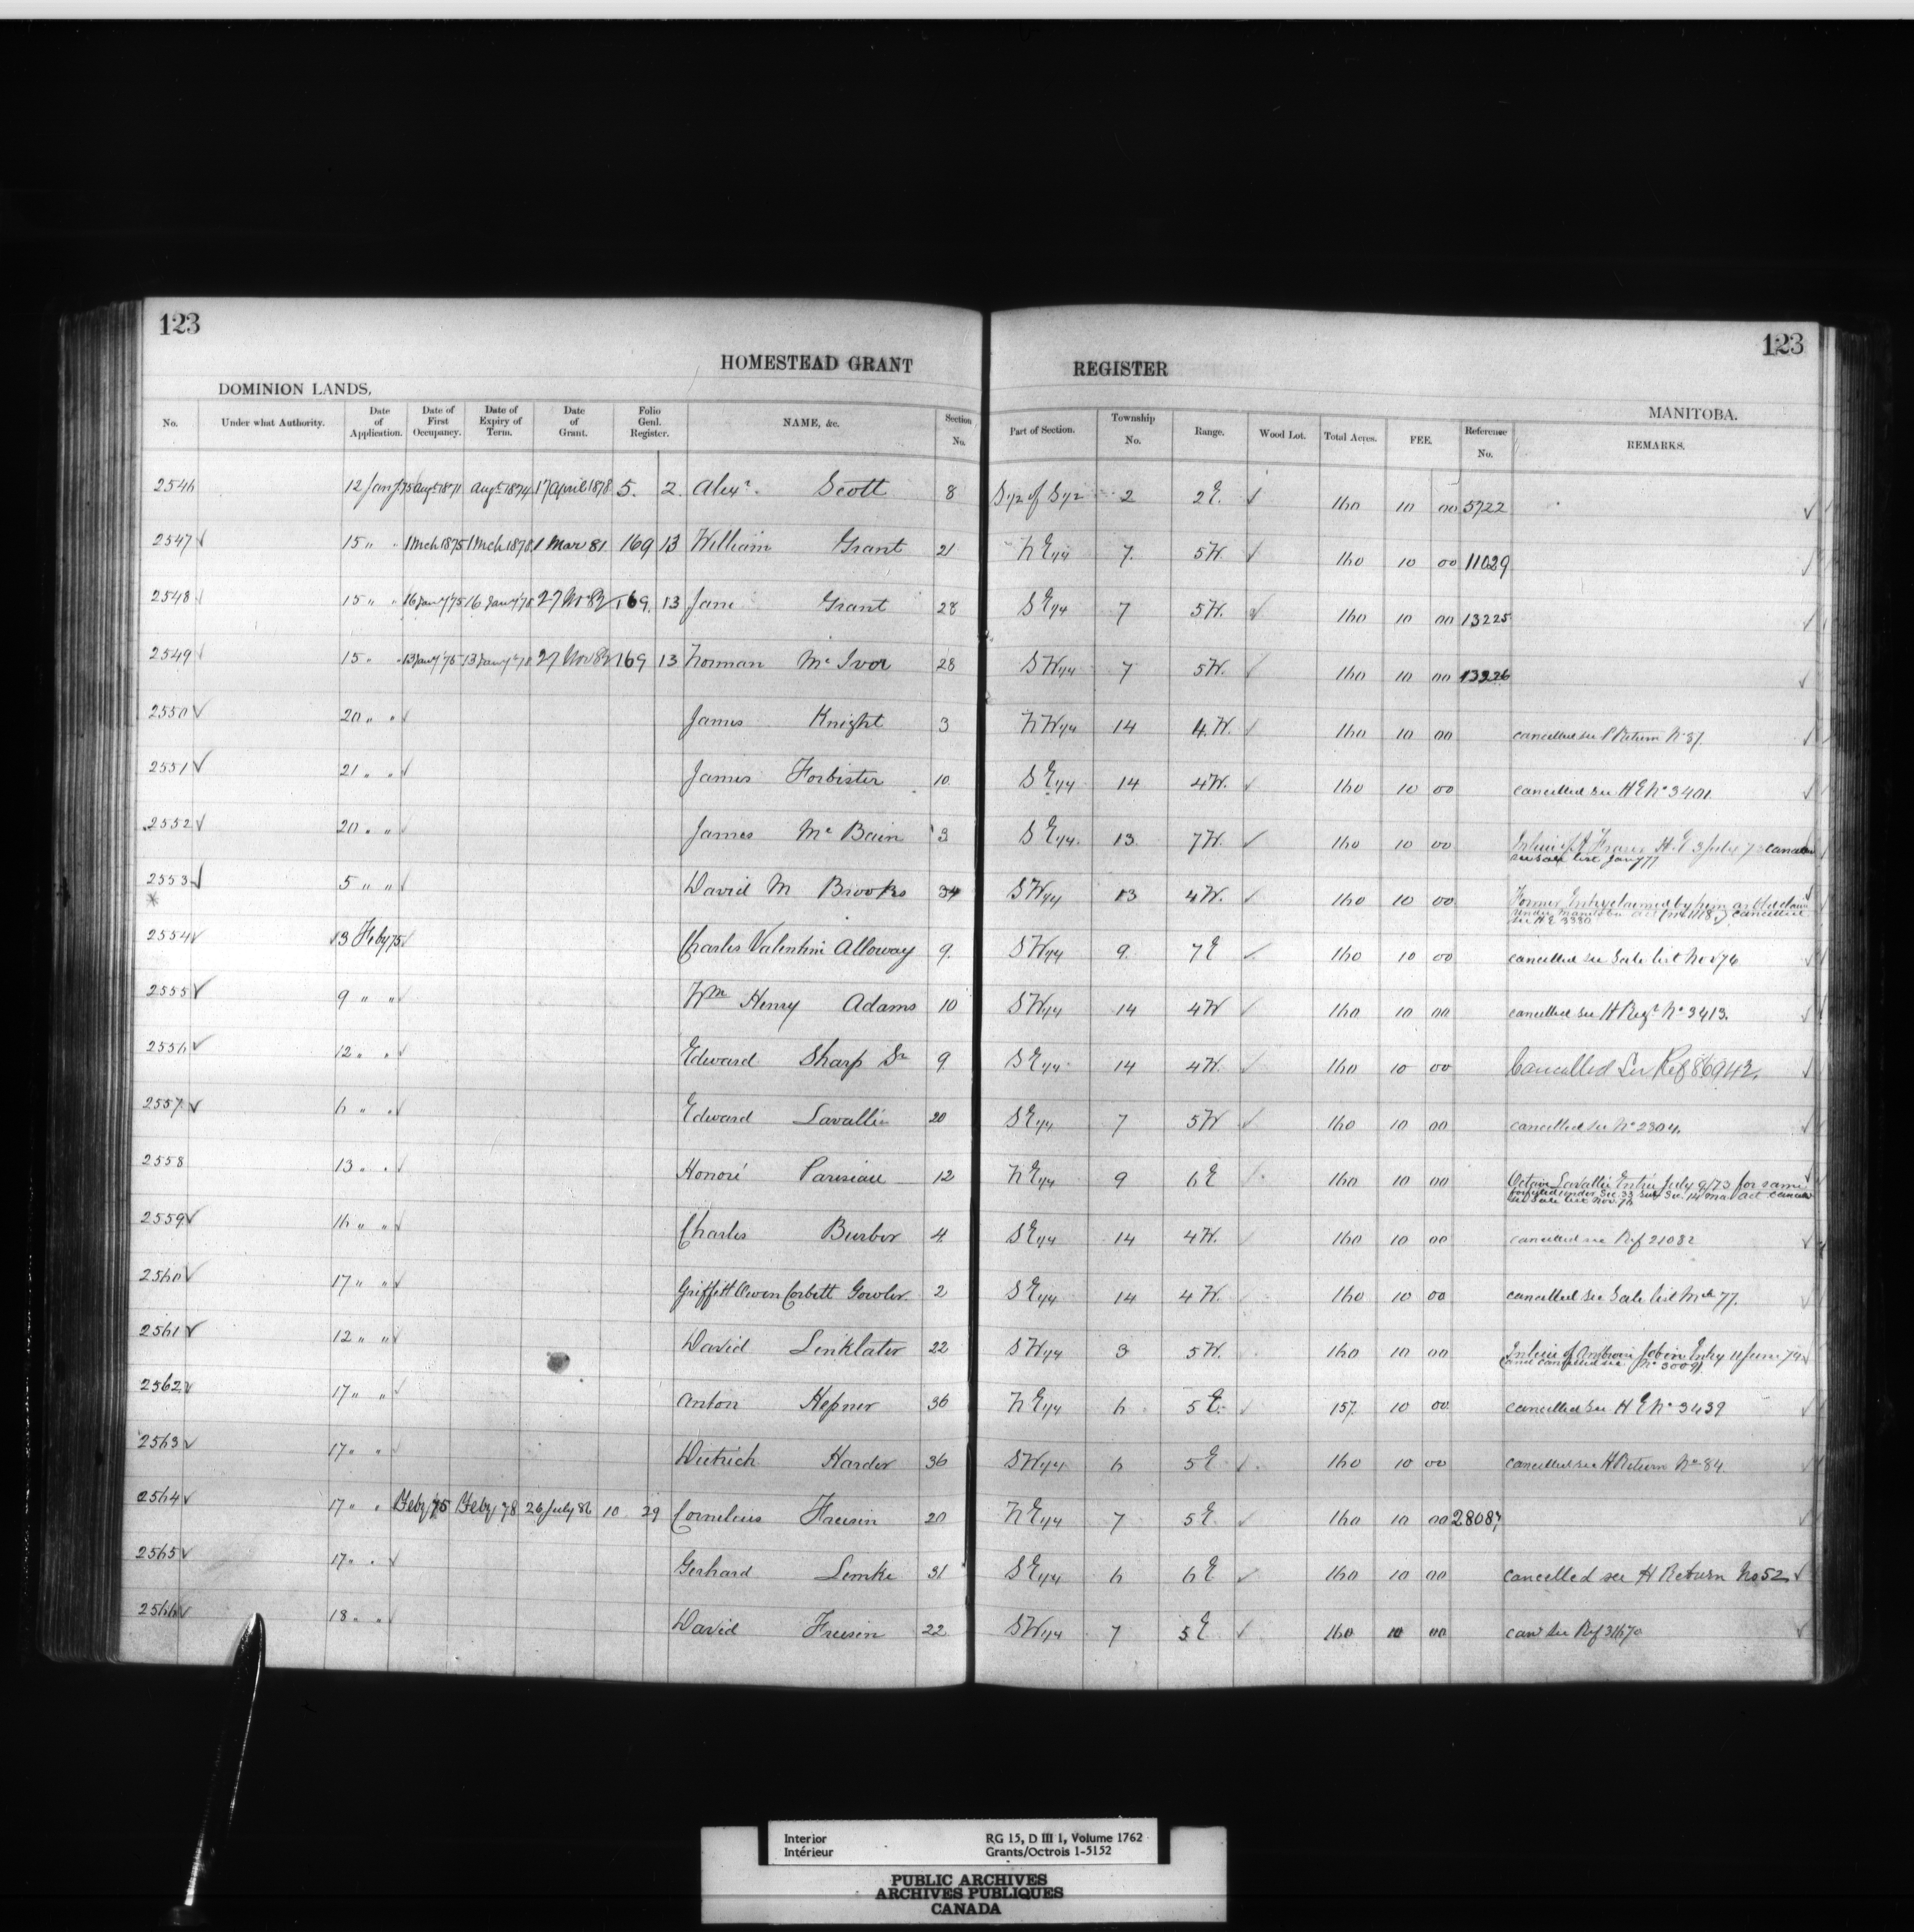 123
123
HOMESTEAD GRANT REGISTER
DOMINION LANDS, MANITOBA.
No. Under what Authority. Date of Application. Date of First Occupancy. Date of Expiry of Term. Date of Grant. Folio Genl. Register. NAME, &c. Section No. Part of Section. Township No. Range. Wood Lot. Total Acres. FEE. Reference No. REMARKS.
2546 12 Jany 75 Augt 1871 Augt 1874 17 April 1878 5. 2. Alexr. Scott 8 S 1/2 of S 1/2 2 2 E. ✓ 160 10 00 5722 ✓
2547 ✓ 15 " " 1 Mch 1875 1 Mch 1878 1 Mar 81 169 13 William Grant 21 N E 1/4 7. 5 W. ✓ 160 10 00 11029
2548 15 " " 16 Jany 75 16 Jany 78 27 Nov 82 169. 13 Jane Grant 28 S E 1/4 7 5 W. ✓ 160 10 00 13225
2549 15 " " 13 Jany 75 13 Jany 78 27 Nov 82 169 13 Norman Mc Ivor 28 S W 1/4 7 5 W. ✓ 160 10 00 13226 ✓
2550 ✓ 20 " " ✓ James Knight 3 N W 1/4 14 4. W. ✓ 160 10 00 cancelled see Return No 37. ✓
2551 ✓ 21 " " ✓ James Forbister 10. S E 1/4 14 4 W. ✓ 160 10 00 cancelled see H E No 3401. ✓
2552 ✓ 20 " " ✓ James Mc Bain 3 S E 1/4. 13. 7 W. ✓ 160 10 00 In lieu of A Fraser H. E 3 July 7 cancelled
see Sale list Jany 77
2553 ✓ 5 " " ✓ David M Brooks 34 S W 1/4 13 4 W. ✓ 160 10 00 Former Entry claimed by him as old claim
* under Manitoba act cancelled
see H E 3380
2554 ✓ 13 Feby 75 ✓ Charles Valentine Alloway 9. S W 1/4 9. 7 E ✓ 160 10 00 cancelled see Sale list Nov 76 ✓
2555 ✓ 9 " " ✓ Wm Henry Adams 10 S W 1/4 14 4 W ✓ 160 10 00 cancelled see H Regr No 3413. ✓
2556 ✓ 12 " " ✓ Edward Sharp Sr 9. S E 1/4 14 4 W. ✓ 160 10 00 Cancelled See Ref 86942. ✓
2557 ✓ 6 " " ✓ Edward Lavallie 20 S E 1/4 7 5 W ✓ 160 10 00 cancelled see No 2804. ✓
2558 13 " " ✓ Honoré Parisiau 12 N E 1/4 9 6 E 160 10 00 Lavallie Entry July 9/73 for same
forfeited under Sec 33 Sub Sec 14 man act
see Sale list Nov. 76
2559 ✓ 16 " " ✓ Charles Burbor 4 S E 1/4 14 4 W. 160 10 00 cancelled see Ref 21082 ✓
2560 ✓ 17 " " ✓ Griffith Owen Corbett Gowler. 2 S E 1/4 14 4 W. 160 10 00 cancelled see Sale list Mch 77.
2561 ✓ 12 " " ✓ David Linklater 22 S W 1/4 3 5 W. 160 10 00 In lieu of Ambroise Jobin Entry 11 June 74 ✓
cancelled see No 3009
2562 ✓ 17 " " ✓ Anton Hepner 36 N E 1/4 6 5 E. ✓ 157. 10 00 cancelled see H E No 3439 ✓
2563 ✓ 17 " " ✓ Dietrich Harder 36 S W 1/4 6 5 E ✓ 160 10 00 cancelled see H Return No 84. ✓
2564 ✓ 17 " " Feby '75 Feby 78 26 July 86 10 39 Cornelius Friesin 20 N E 1/4 7 5 E ✓ 160 10 00 28087 ✓
2565 ✓ 17 " " ✓ Gerhard Lemke 31 S E 1/4 6 6 E ✓ 160 10 00 cancelled see H Return No 52 ✓
2566 ✓ 18 " " ✓ David Friesin 22 S W 1/4 7 5 E ✓ 160 10 00 can'd see Ref 31670 ✓
Interior RG 15, D III 1, Volume 1762
Intérieur Grants/Octrois 1-5152
PUBLIC ARCHIVES
ARCHIVES PUBLIQUES
CANADA